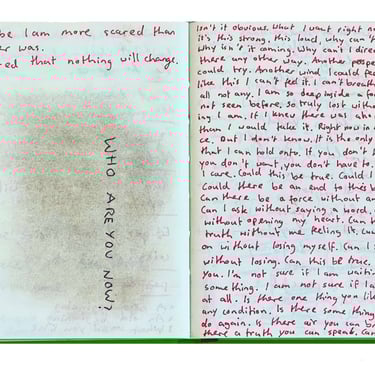 be I am more scared than
er was.
red that nothing will change.
WHO ARE YOU NOW?
isn't it obvious. What I want right no
it's this strong, this loud, why can't
Why isn't it coming. Why can't I dire
there any other way. Another perspe
could try. Another wind I could fee
like this I can't feel it. I can't breath
all not any. I am so deep inside a fal
not seen before, so truly lost witho
ing I am. If I knew there was ano
than I would take it. Right now in a
ce. But I don't know. It is the only
that I can hold onto. If you don't
you don't want, you don't have to.
I care. Could this be true. Could I
Could there be an end to this
Can there be a force without an
Can I ask without saying a word,
without opening my heart. Can
truth without me feeling it. Cou
on without losing myself. Can I
without losing. Can this be true.
you. I'm not sure if I am waitin
something. I am not sure if I a
at all. Is there one thing you li
any condition. Is there some thing
do again. Is there air you can b
there a truth you can speak. Can